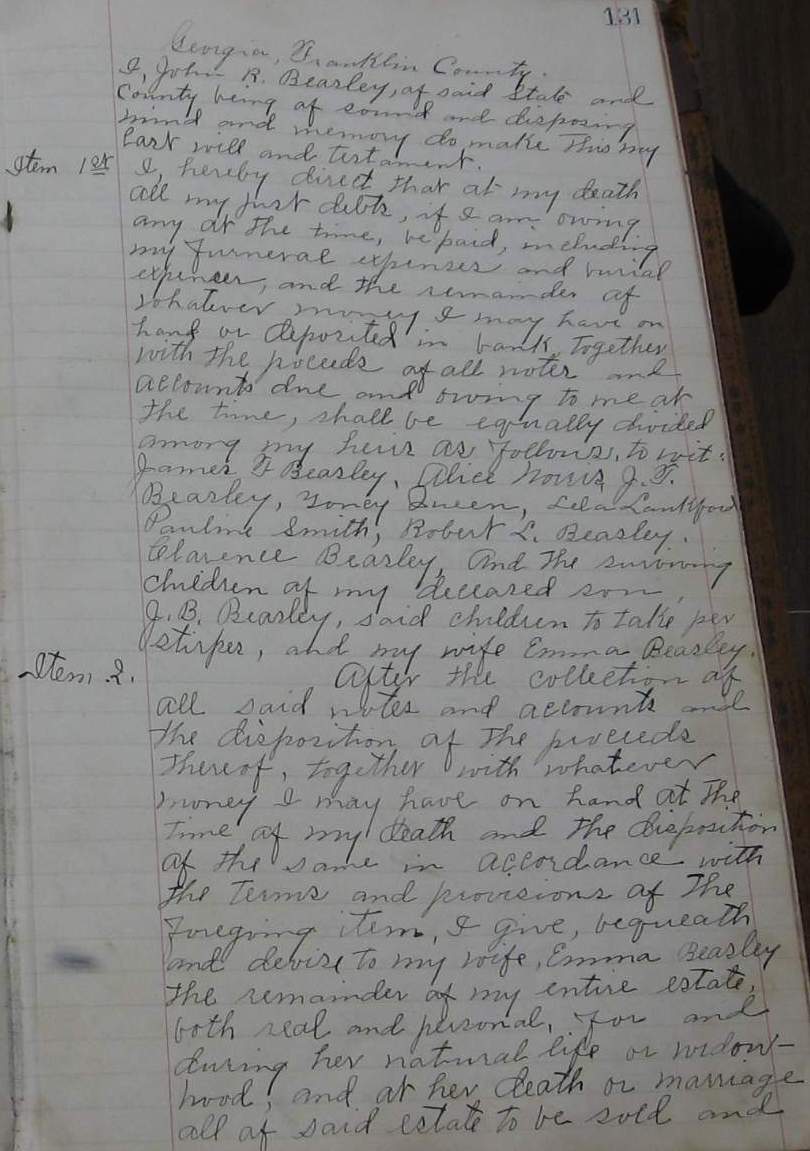 131
Georgia, Franklin County.
I, John R. Beasley, of said State and
County being of sound and disposing
mind and memory do make this my
last will and testament.
Item 1st I, hereby direct that at my death
all my just debts, if I am owing
any at the time, be paid, including
my furneral expenses and burial
expences, and the remainder of
whatever money I may have on
hand or deposited in bank, together
with the poceeds of all notes and
accounts due and owing to me at
the time, shall be equally divided
among my heirs as follows, to wit:
James F Beasley, Alice Norris, J. T.
Beasley, Toncy Queen, Lela Lankford
Pauline Smith, Robert L. Beasley.
Clarence Beasley, And the surviving
children of my deceased son,
J. B. Beasley, said children to take per
stirpes, and my wife Emma Beasley.
Item 2. After the collection of
all said notes and accounts and
the disposition of the proceeds
thereof, together with whatever
money I may have on hand at the
time of my death and the disposition
of the same in accordance with
the terms and provisions of the
foregoing item, I give, bequeath
and devise to my wife, Emma Beasley
the remainder of my entire estate,
both real and personal, for and
during her natural life or widow-
hood, and at her death or marriage
all of said estate to be sold and